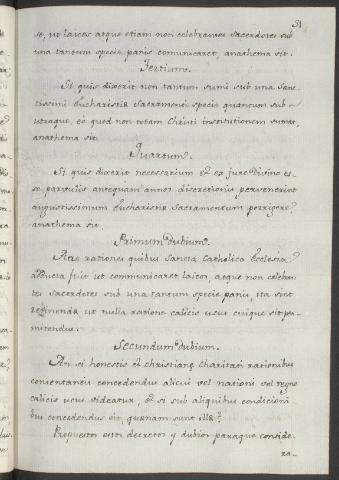 31
se, ut laicos atque etiam non celebrantes sacerdotes sub
una tantum specie panis comunicaret, anathema sit.
Tertium.
Si quis dixerit non tantum sumi sub una Sanc-
tissimi Eucharistiæ Sacramenti specie quantum sub
utraque, eo quod non totam Christi institutionem sumat,
anathema sit.
Quartum.
Si quis dixerit necessarium et ex jure Divino es-
se parvulis antequam annos discretionis pervenerint
augustissimum Eucharistiæ Sacramentum porrigere
anathema sit.
Primum dubium.
An rationes quibus Sancta Catholica Ecclesia
adducta fuit ut communicaret laicos, atque non celebran-
tes sacerdotes sub una tantum specie panis, ita sint
retinendæ ut nulla ratione calicis usus cuique sit per-
mitendus.
Secundum dubium.
An si honestis et christianæ Charitati rationibus
conventaneis concedendus alicui vel nationi vel regno
calicis usus videatur, et si sub aliquibus condicioni-
bus concedendus sit, quænam sunt illæ?
Propositis istis decretis et dubiis paraque conside-
ra-